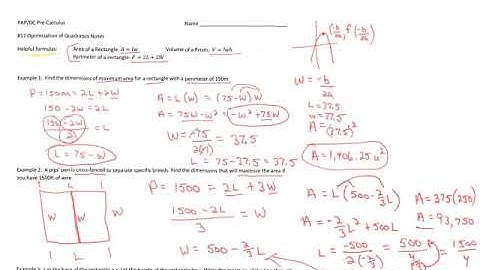 PAP/DC Pre-Calculus Name
#17 Optimization of Quadratics Notes
Helpful formulas: Area of a Rectangle: A = lw Volume of a Prism: V = lwh
Perimeter of a rectangle: P = 2L + 2W
(-b/2a, f(-b/2a))
Example 1: Find the dimensions of maximum area for a rectangle with a perimeter of 150m
P = 150m = 2L + 2W
150 - 2W = 2L
(150 - 2W)/2 = L
L = 75 - W
A = L(w) = (75-w)w
A = 75W - W² = -W² + 75W
W = -75/2(-1) = 37.5
L = 75 - 37.5 = 37.5
W = -b/2a
L = 37.5
W = 37.5
A = (37.5)²
A = 1,406.25 u²
Example 2: A pigs' pen is cross-fenced to separate specific breeds. Find the dimensions that will maximize the area if
you have 1500ft of wire.
L L
W W W
L L
P = 1500 = 2L + 3W
(1500 - 2L)/3 = W
W = 500 - 2/3 L
A = L(500 - 2/3 L)
A = -2/3 L² + 500L
L = -500/2(-2/3) = 500/(4/3) = 1500/4
A = 375(250)
A = 93,750